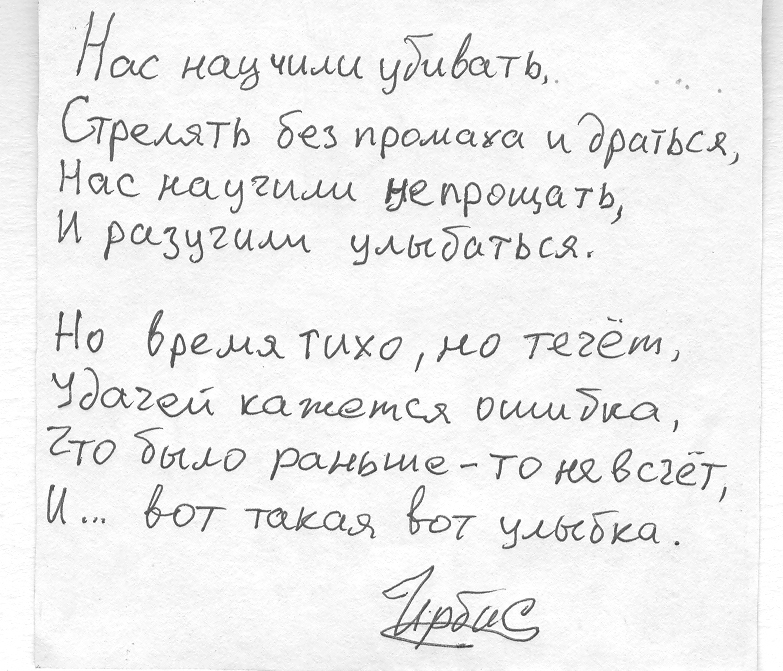 Нас научили убивать,
Стрелять без промаха и драться,
Нас научили не прощать,
И разучили улыбаться.
Но время тихо, но течёт,
Удачей кажется ошибка,
Что было раньше – то не в счёт,
И... вот такая вот улыбка.
Ирбис